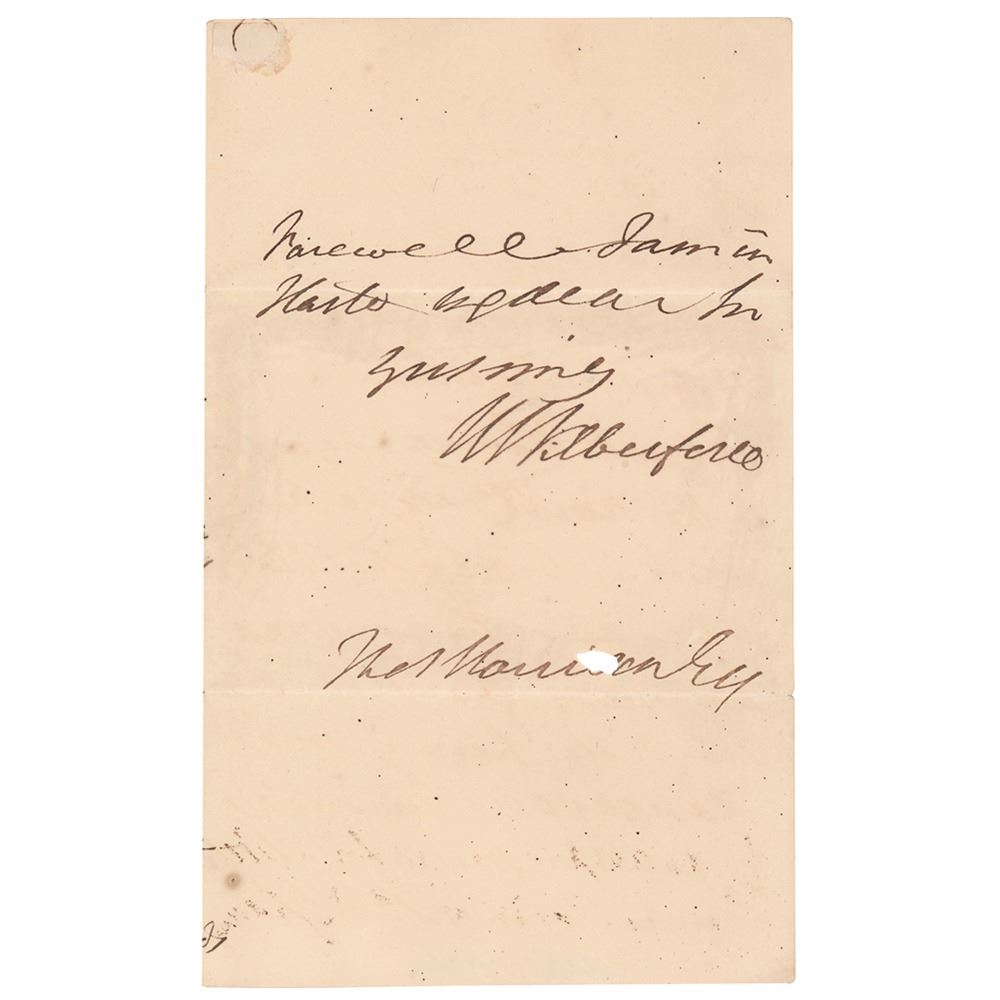 Farewell I am in
Haste my dear Sir
yrs sincly
W Wilberforce
Thos Harrison Esq